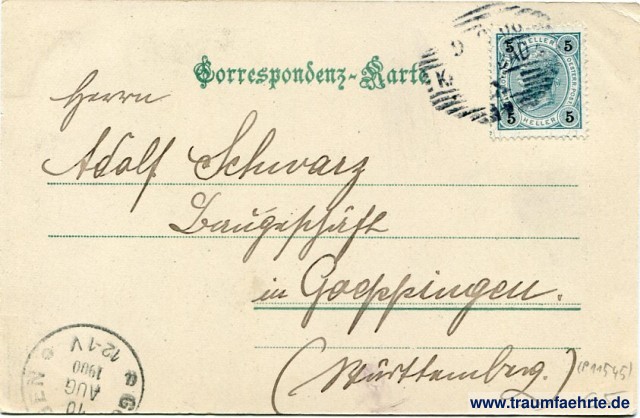 Correspondenz-Karte
5 HELLER 5
5 HELLER 5
Herrn
Adolf Schwarz
Baugeschäft
in Goeppingen.
(Württemberg.)
(P11545)
12-1 V
1900
AUG
10
www.traumfaehrte.de